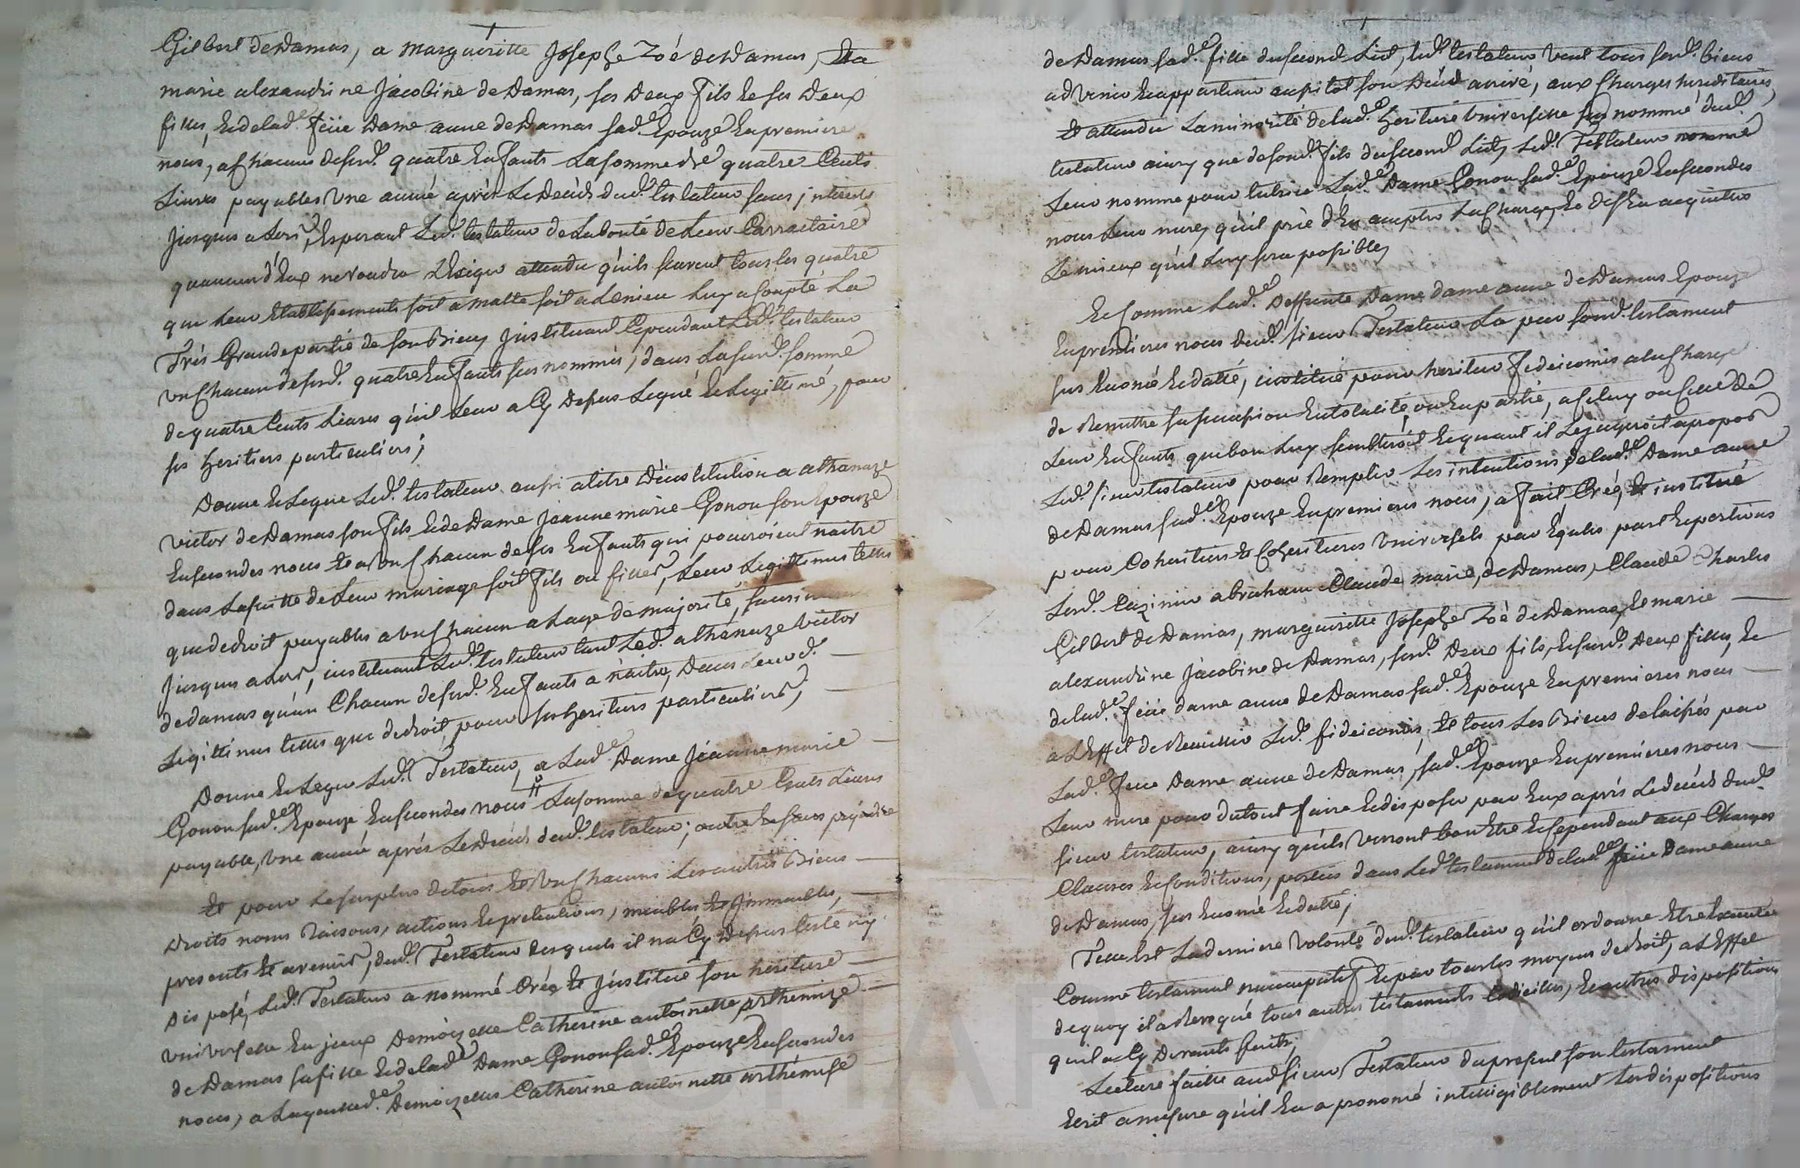 Gilbert de Damas, a marguéritte Josephe Zoé de Damas, Et a
marie alexandrine Jacobine de Damas, ses Deux fils Et ses Deux
filles, Et de lad.e feüe Dame anne de Damas sad.e Epouze En premiere
noces, a chacun desesd. quatre Enfants La somme de quatre Cents
Livres payables Une année aprés Le Decés dud. testateur sans jnterets
jusques alors, Esperant Led. testateur de La bonté de Leur Carractaire
qu'aucun d'Eux ne voudra L'Exiger attendu qu'ils scavent tous les quatre
que leur Etablissements soit a malte soit a Lenieu Luy a Coupté La
Trés Grande partie de son Bien, Jnstituant Cependant Led. testateur
un Chacun desesd. quatre Enfants sus nommés, dans La susd. somme
de quatre Cents Livres qu'il Leur a Cy Dessus Legué Et Legittimé, pour
ses heritiers particuliers;
Donne Et Legue Led. testateur aussi a titre D'institution a athanaze
victor de Damas son fils Et de Dame Jeanne marie Gonon son Epouze
En secondes noces Et a un Chacun de ses Enfants qui pourroient naitre
dans La suitte de Leur mariage soit fils ou filles, Leur Legittimes telles
que de droit payables a un Chacun a L'age de majorité, sans
jusques alors, instituant Led. testateur tant Led. athanaze victor
de damas qu'un Chacun desesd. Enfants a naitre, Dans Leursd.
Legittimes telles que de droit pour ses heritiers particuliers,
Donne Et Legue Led. Testateur, a Lad.e Dame Jeanne marie
Gonon sad.e Epouze En secondes noces La somme de quatre Cents Livres
payable, Une année aprés Le Decés dud. testateur; outre Et sans préjudice
Et pour Le surplus de tous Et Un Chacuns Les autres Biens
Droits noms Raisons, actions Et pretentions, meubles Et Jmmeubles,
presents Et avenir, dud. Testateur desquels il n'a Cy Dessus testé ny
Disposé, Led. Testateur a nommé Créé Et Jnstitué son héritiere
universelle En jceux Demoizelle Catherine antoinette arthemize
de Damas sa fille Et de lad.e Dame Gonon sad.e Epouze En secondes
noces, a Laquelle d.e Demoizelle Catherine antoinette arthémise
de Damas sad.e fille du second Lict, Led. testateur veut tous sesd. biens
advenir Et appartenir aussitot son Décés arrivé, aux Charges hereditaires,
Et attendu La minorité de lad.e heritiere universelle sus nommé dud.
testateur ainsy que de sond. fils du second Lict, Led. Testateur nomme
Leur nomme pour tutrice Lad.e Dame Gonon sad.e Epouze En secondes
noces Leur mere, qu'il prie d'En accepter La Charge, Et de s'En acquitter
Le mieux qu'il Luy sera possible,
Et Comme Lad.e Deffunte Dame dame anne de Damas Epouze
En premieres noces dud. sieur Testateur La par sond. testament
sus Enoncé Et datté, institué pour heritier fideicomis a la Charge
de Remettre sa succession En totalité ou En partie, a celuy ou celle de
Leur Enfants que bon Luy sembleroit Et quant il Le jugeroit apropos
Led. sieur testateur pour Remplir Les intentions de lad.e Dame anne
de Damas sad.e Epouze En premieres noces, a fait Créé Et institué
pour Coheritiers Et Coheritieres Universels par Egalles part Et portions
Lesd. Cazimir abraham Claude marie, de Damas, Claude Charles
Gilbert de Damas, marguerette Josephe Zoé de Damas, Et marie
alexandrine Jacobine de Damas, sesd. Deux fils, Et sesd. Deux filles, Et
de lad.e feüe dame anne de Damas sad.e Epouze En premieres noces
a L'Effet de Recueillir Led. fideicomis, Et tous Les Biens delaissés par
Lad.e feüe Dame anne de Damas, sad.e Epouze En premieres noces
Leur mere pour du tout faire Et disposer par Eux aprés Le decés dud.
sieur testateur, ainsy qu'ils verront bon Etre Et Cependant aux Charges
Clauses Et Conditions, portées dans Led. testament de lad.e feüe Dame anne
de Damas, sus Enoncé Et datté;
Telle Est La derniere volonté dud. testateur qu'il ordonne Etre Executée
Comme testament nuncupatif Et par tous les moyens de droit, a L'Effet
de quoy il a Revoqué tous autres testaments Codiciles, Et autres dispositions
qu'il a Cy Devants faits;
Lecture faitte aud. sieur Testateur du present son testament
Ecrit a mesure qu'il En a prononcé intelligiblement Les dispositions